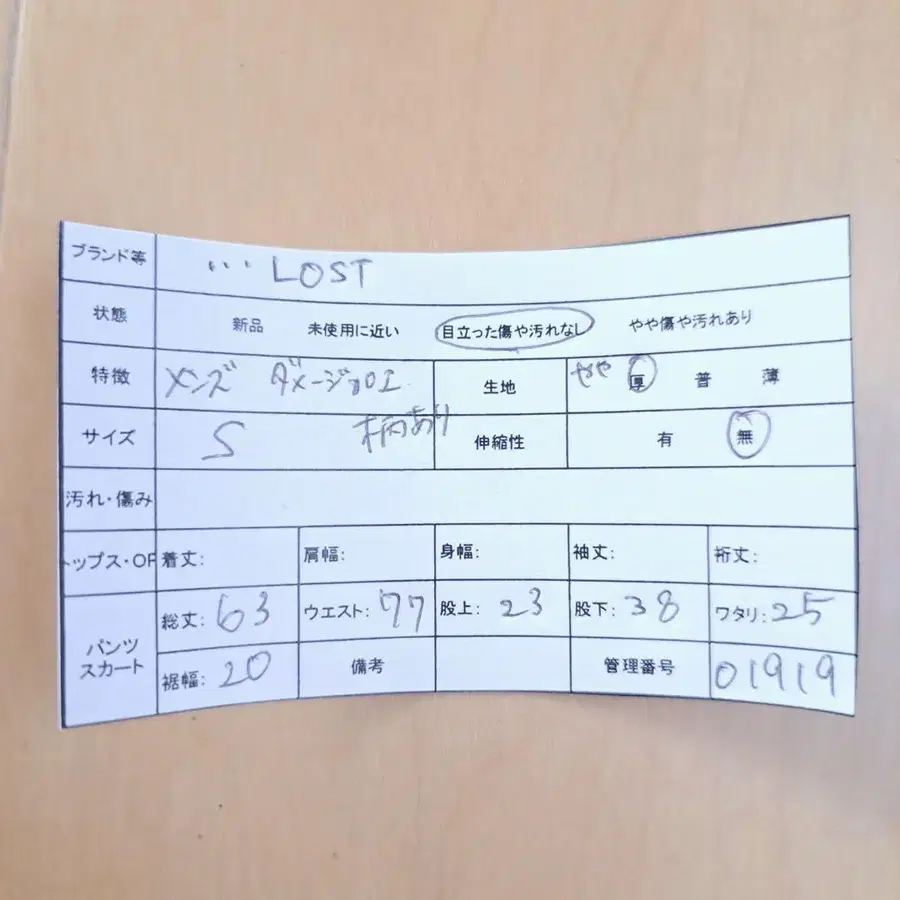 ブランド等 ... LOST
状態 新品 未使用に近い 目立った傷や汚れなし やや傷や汚れあり
特徴 メンズ ダメージ加工 生地 やや 厚 普 薄
サイズ S 柄あり 伸縮性 有 無
汚れ・傷み
トップス・OP 着丈: 肩幅: 身幅: 袖丈: 裄丈:
パンツ スカート 総丈: 63 ウエスト: 77 股上: 23 股下: 38 ワタリ: 25
裾幅: 20 備考 管理番号 01919